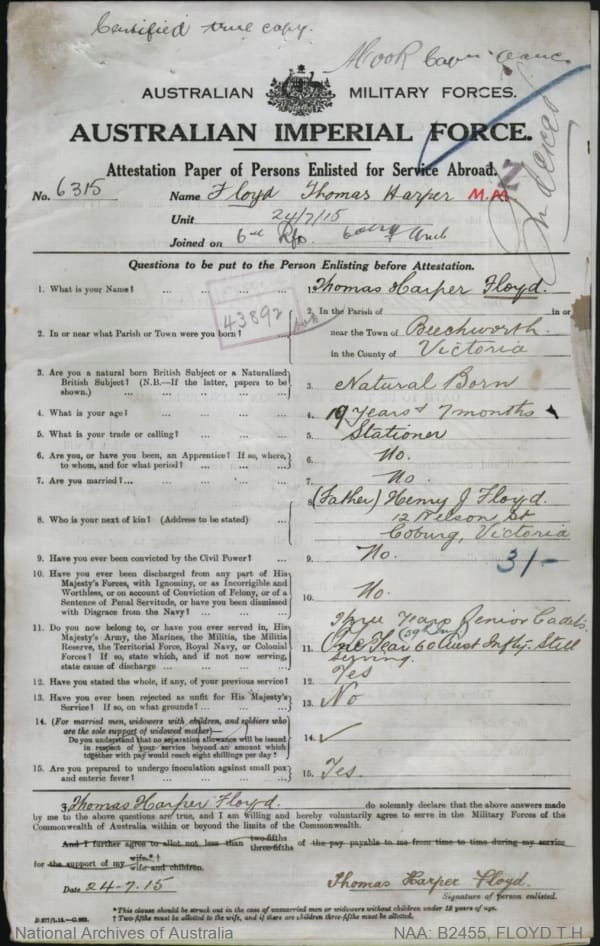 Certified true copy.
AUSTRALIAN MILITARY FORCES.
AUSTRALIAN IMPERIAL FORCE.
Attestation Paper of Persons Enlisted for Service Abroad.
No. 6315 Name Floyd Thomas Harper M.M
Unit 24/7/15
Joined on 6th Rfs.
Questions to be put to the Person Enlisting before Attestation.
1. What is your Name? ... ... ... 1. Thomas Harper Floyd.
43892
2. In or near what Parish or Town were you born? 2. In the Parish of in or
near the Town of Beechworth.
in the County of Victoria
3. Are you a natural born British Subject or a Naturalized
British Subject? (N.B.—If the latter, papers to be
shown.) ... ... ... ... 3. Natural Born
4. What is your age? ... ... ... 4. 19 years & 7 months
5. What is your trade or calling? ... ... ... 5. Stationer
6. Are you, or have you been, an Apprentice? If so, where,
to whom, and for what period? ... ... ... 6. No.
7. Are you married?... ... ... ... 7. No.
8. Who is your next of kin? (Address to be stated) ... 8. (Father) Henry J Floyd.
12 Nelson St
Coburg, Victoria
9. Have you ever been convicted by the Civil Power? ... 9. No. 3/-
10. Have you ever been discharged from any part of His
Majesty's Forces, with Ignominy, or as Incorrigible and
Worthless, or on account of Conviction of Felony, or of a
Sentence of Penal Servitude, or have you been dismissed
with Disgrace from the Navy? ... ... ... 10. No.
11. Do you now belong to, or have you ever served in, His
Majesty's Army, the Marines, the Militia, the Militia
Reserve, the Territorial Force, Royal Navy, or Colonial
Forces? If so, state which, and if not now serving,
state cause of discharge ... ... ... 11. Three Years Senior Cadets
One Year 60 Aust Infty. Still
serving
12. Have you stated the whole, if any, of your previous service? 12. Yes
13. Have you ever been rejected as unfit for His Majesty's
Service? If so, on what grounds? ... ... ... 13. No
14. (For married men, widowers with children, and soldiers who
are the sole support of widowed mother)—
Do you understand that no separation allowance will be issued
in respect of your service beyond an amount which
together with pay would reach eight shillings per day? 14. ✓
15. Are you prepared to undergo inoculation against small pox
and enteric fever? ... ... ... ... 15. Yes.
I, Thomas Harper Floyd. do solemnly declare that the above answers made
by me to the above questions are true, and I am willing and hereby voluntarily agree to serve in the Military Forces of the
Commonwealth of Australia within or beyond the limits of the Commonwealth.
And I further agree to allot not less than two-fifths three-fifths of the pay payable to me from time to time during my service
for the support of my wife*† wife and children.
Date 24-7-15 Thomas Harper Floyd.
Signature of person enlisted.
*This clause should be struck out in the case of unmarried men or widowers without children under 18 years of age.
† Two-fifths must be allotted to the wife, and if there are children three-fifths must be allotted.
National Archives of Australia NAA: B2455, FLOYD T H